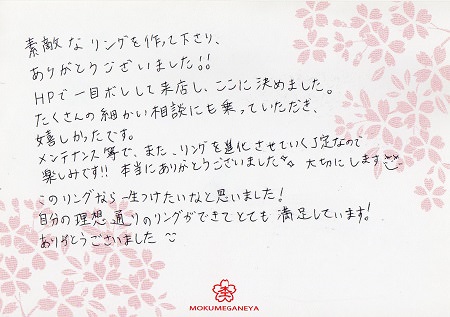 素敵なリングを作って下さり、
ありがとうございました!!
HPで一目ボレして来店し、ここに決めました。
たくさんの細かい相談にも乗っていただき、
嬉しかったです。
メンテナンス等で、また、リングを進化させていく予定なので
楽しみです!! 本当にありがとうございました 大切にします
このリングなら一生つけたいなと思いました!
自分の理想通りのリングができてとても満足しています!
ありがとうございました
MOKUMEGANEYA